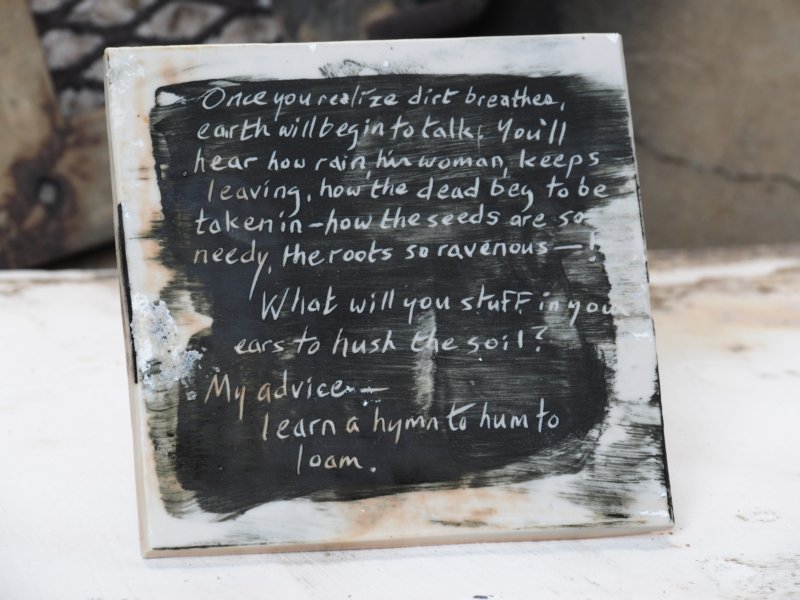 Once you realize dirt breathes,
earth will begin to talk. You'll
hear how rain, his woman, keeps
leaving, how the dead beg to be
taken in – how the seeds are so
needy, the roots so ravenous —!
What will you stuff in your
ears to hush the soil?
My advice —
learn a hymn to hum to
loam.